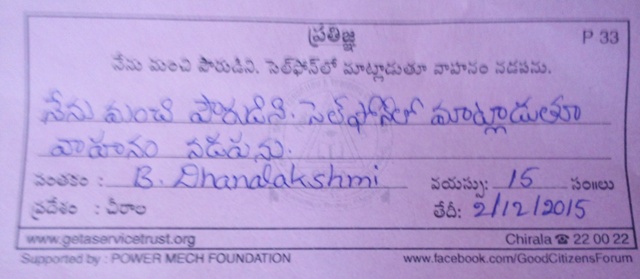 ప్రతిజ్ఞ P 33
నేను మంచి పౌరుడిని. సెల్‌ఫోన్‌లో మాట్లాడుతూ వాహనం నడపను.
నేను మంచి పౌరుడిని. సెల్‌ఫోన్‌లో మాట్లాడుతూ
వాహనం నడపను.
సంతకం : B. Dhanalakshmi వయస్సు: 15 సం॥లు
ప్రదేశం : చీరాల తేదీ: 2/12/2015
www.getaservicetrust.org Chirala ☎ 22 00 22
Supported by : POWER MECH FOUNDATION www.facebook.com/GoodCitizensForum